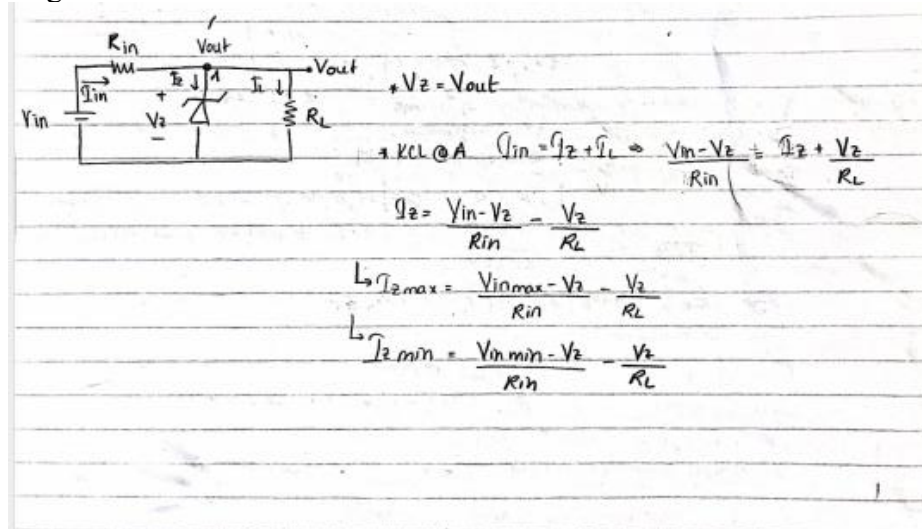 Rin Vout
Iin Iz A IL Vout
Vin + Vz - RL
* Vz = Vout
* KCL @ A Iin = Iz + IL ⇒ (Vin - Vz)/Rin = Iz + Vz/RL
Iz = (Vin - Vz)/Rin - Vz/RL
↳ Izmax = (Vinmax - Vz)/Rin - Vz/RL
↳ Iz min = (Vin min - Vz)/Rin - Vz/RL